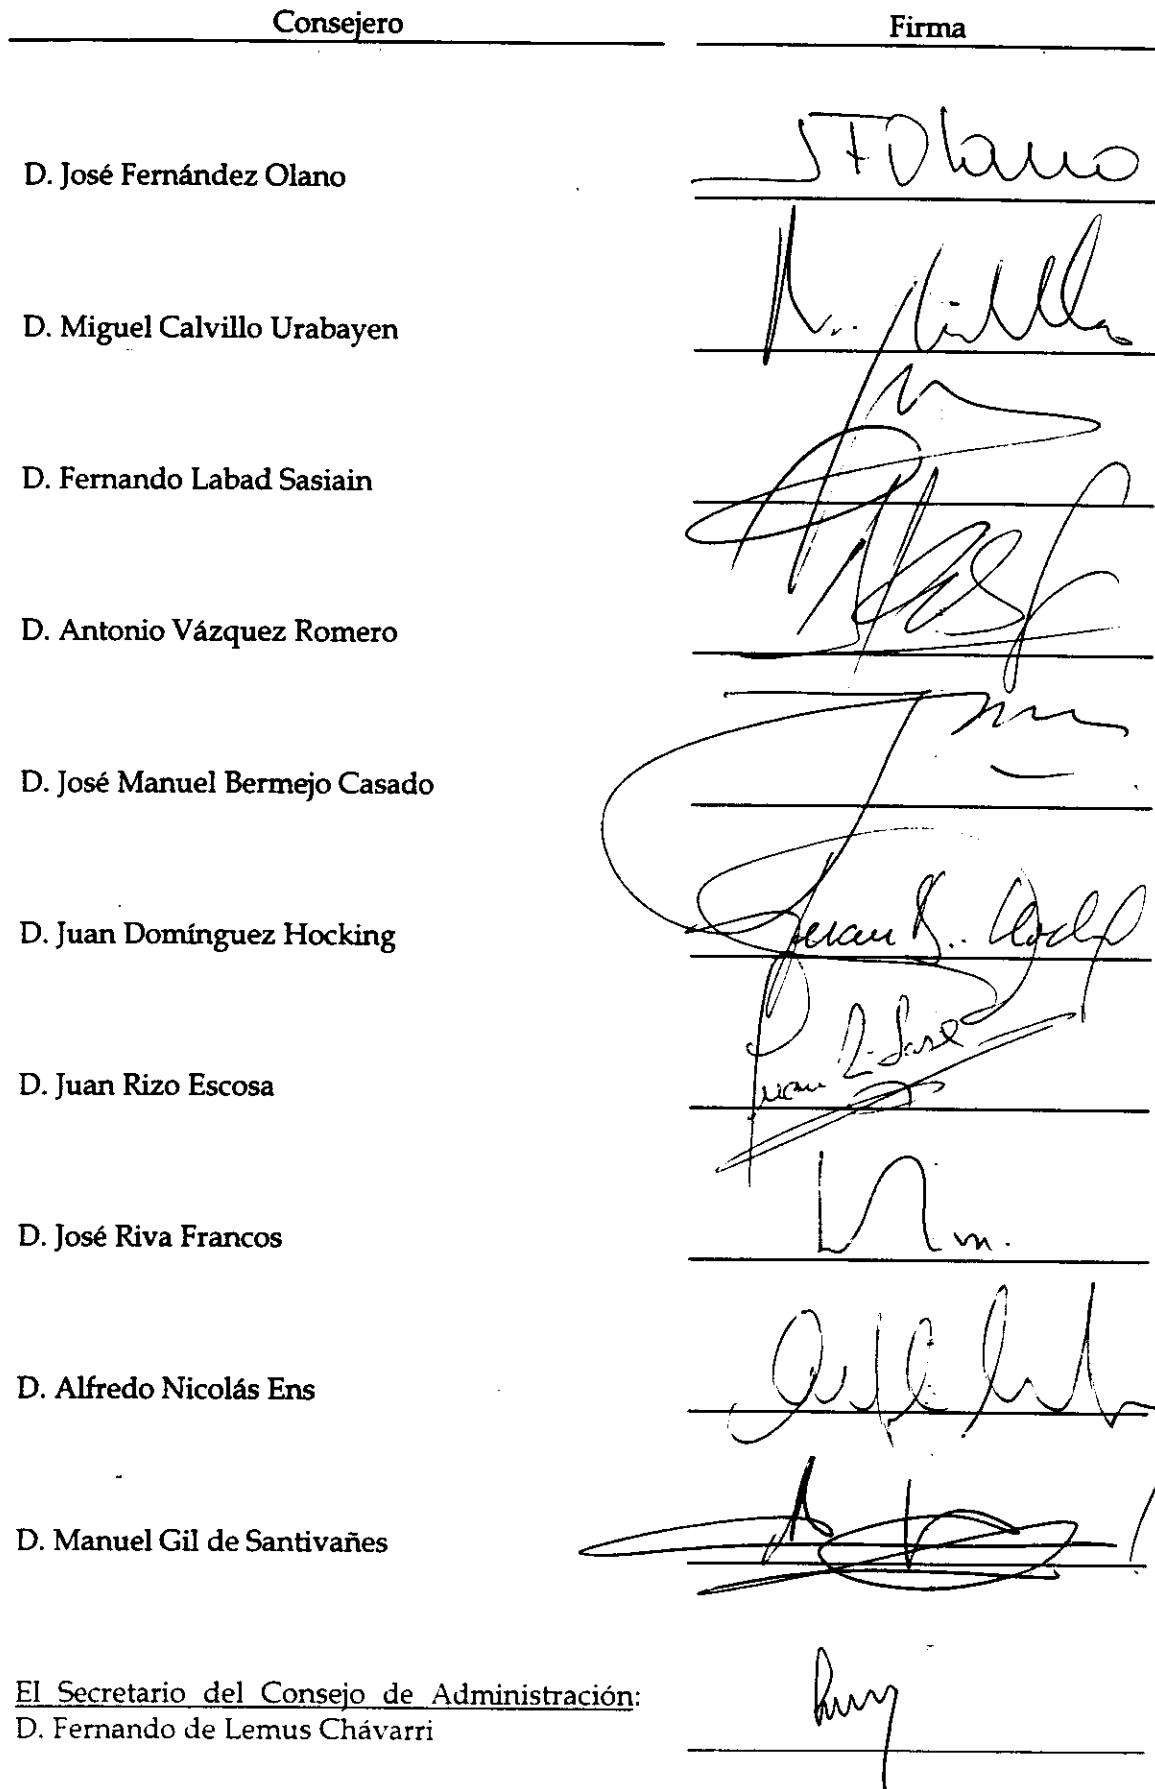 Consejero Firma
D. José Fernández Olano JFOlano
D. Miguel Calvillo Urabayen
D. Fernando Labad Sasiain
D. Antonio Vázquez Romero
D. José Manuel Bermejo Casado
D. Juan Domínguez Hocking Juan
D. Juan Rizo Escosa Juan
D. José Riva Francos
D. Alfredo Nicolás Ens
D. Manuel Gil de Santivañes
El Secretario del Consejo de Administración:
D. Fernando de Lemus Chávarri